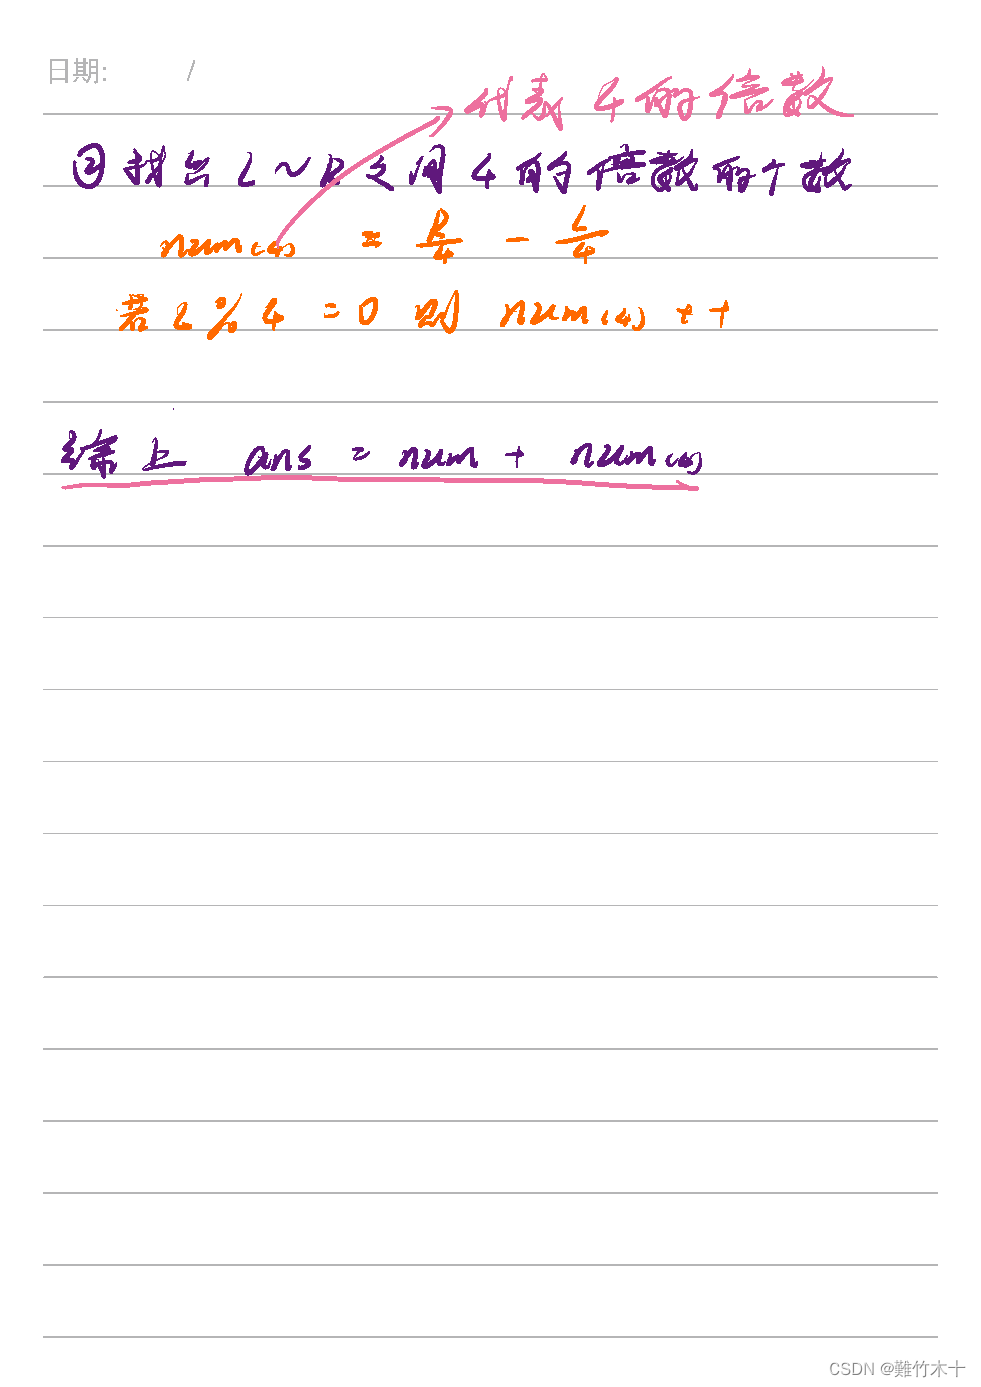 日期: /
代表4的倍数
②找出L~R之间4的倍数的个数
num(4) = R/4 - L/4
若L%4=0则 num(4)++
综上 ans = num + num(4)
CSDN @難竹木十